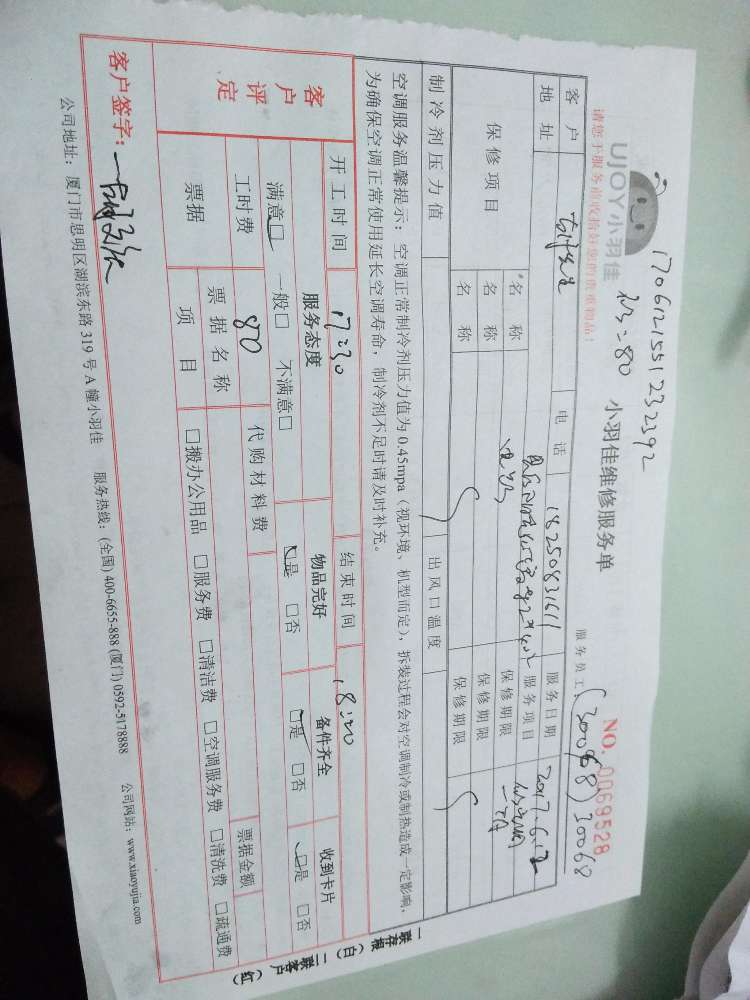 1706121551232392
UJOY小羽佳
NO. 0069528
小羽佳维修服务单
=80
请您于服务前收拾好您的贵重物品！
服务员工 (30068) 30068
客户
电话 18250831611
服务日期 2017.6.12
地址
服务项目
保修项目 名称 保修期限
名称 保修期限
名称 保修期限
制冷剂压力值 出风口温度
空调服务温馨提示：空调正常制冷剂压力值为0.45mpa（视环境、机型而定），拆装过程会对空调制冷或制热造成一定影响，
为确保空调正常使用延长空调寿命，制冷剂不足时请及时补充。
客户评定
开工时间 17:30 结束时间 18:20
服务态度 物品完好 备件齐全 收到卡片
满意□ 一般□ 不满意□ □是 □否 □是 □否 □是 □否
工时费 80 代购材料费
票据 票据名称 票据金额
项目 □搬办公用品 □服务费 □清洁费 □空调服务费 □清洗费 □疏通费
客户签字：
公司地址：厦门市思明区湖滨东路319号A幢小羽佳 服务热线：(全国) 400-6655-888 (厦门) 0592-5178888 公司网站：www.xiaoyujia.com
一联存根（白） 二联客户（红）